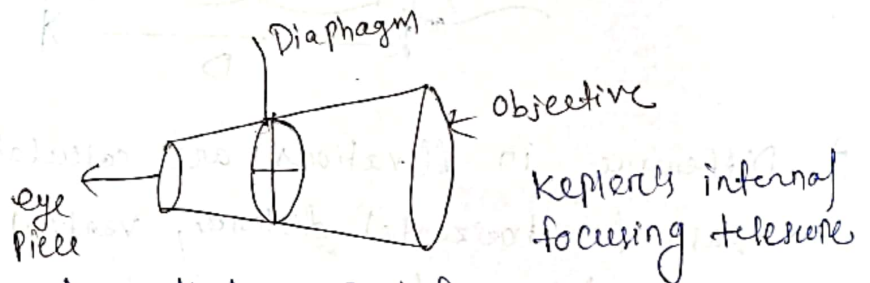 Diaphagm
Objective
eye
piece
Kepler's internal
focusing telescope